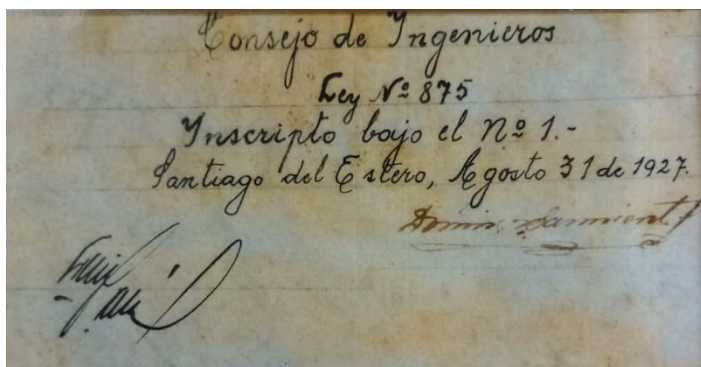 Consejo de Ingenieros
Ley Nº 875
Inscripto bajo el Nº 1.-
Santiago del Estero, Agosto 31 de 1927.